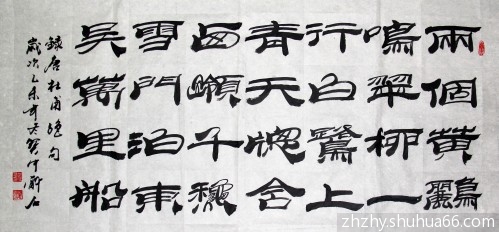 兩個黃鸝
鳴翠柳一
行白鷺上
青天牕含
西嶺千穐
雪門泊東
吳萬里船
錄唐杜甫絕句
歲次乙未年
zhzhy.shuhua66.com